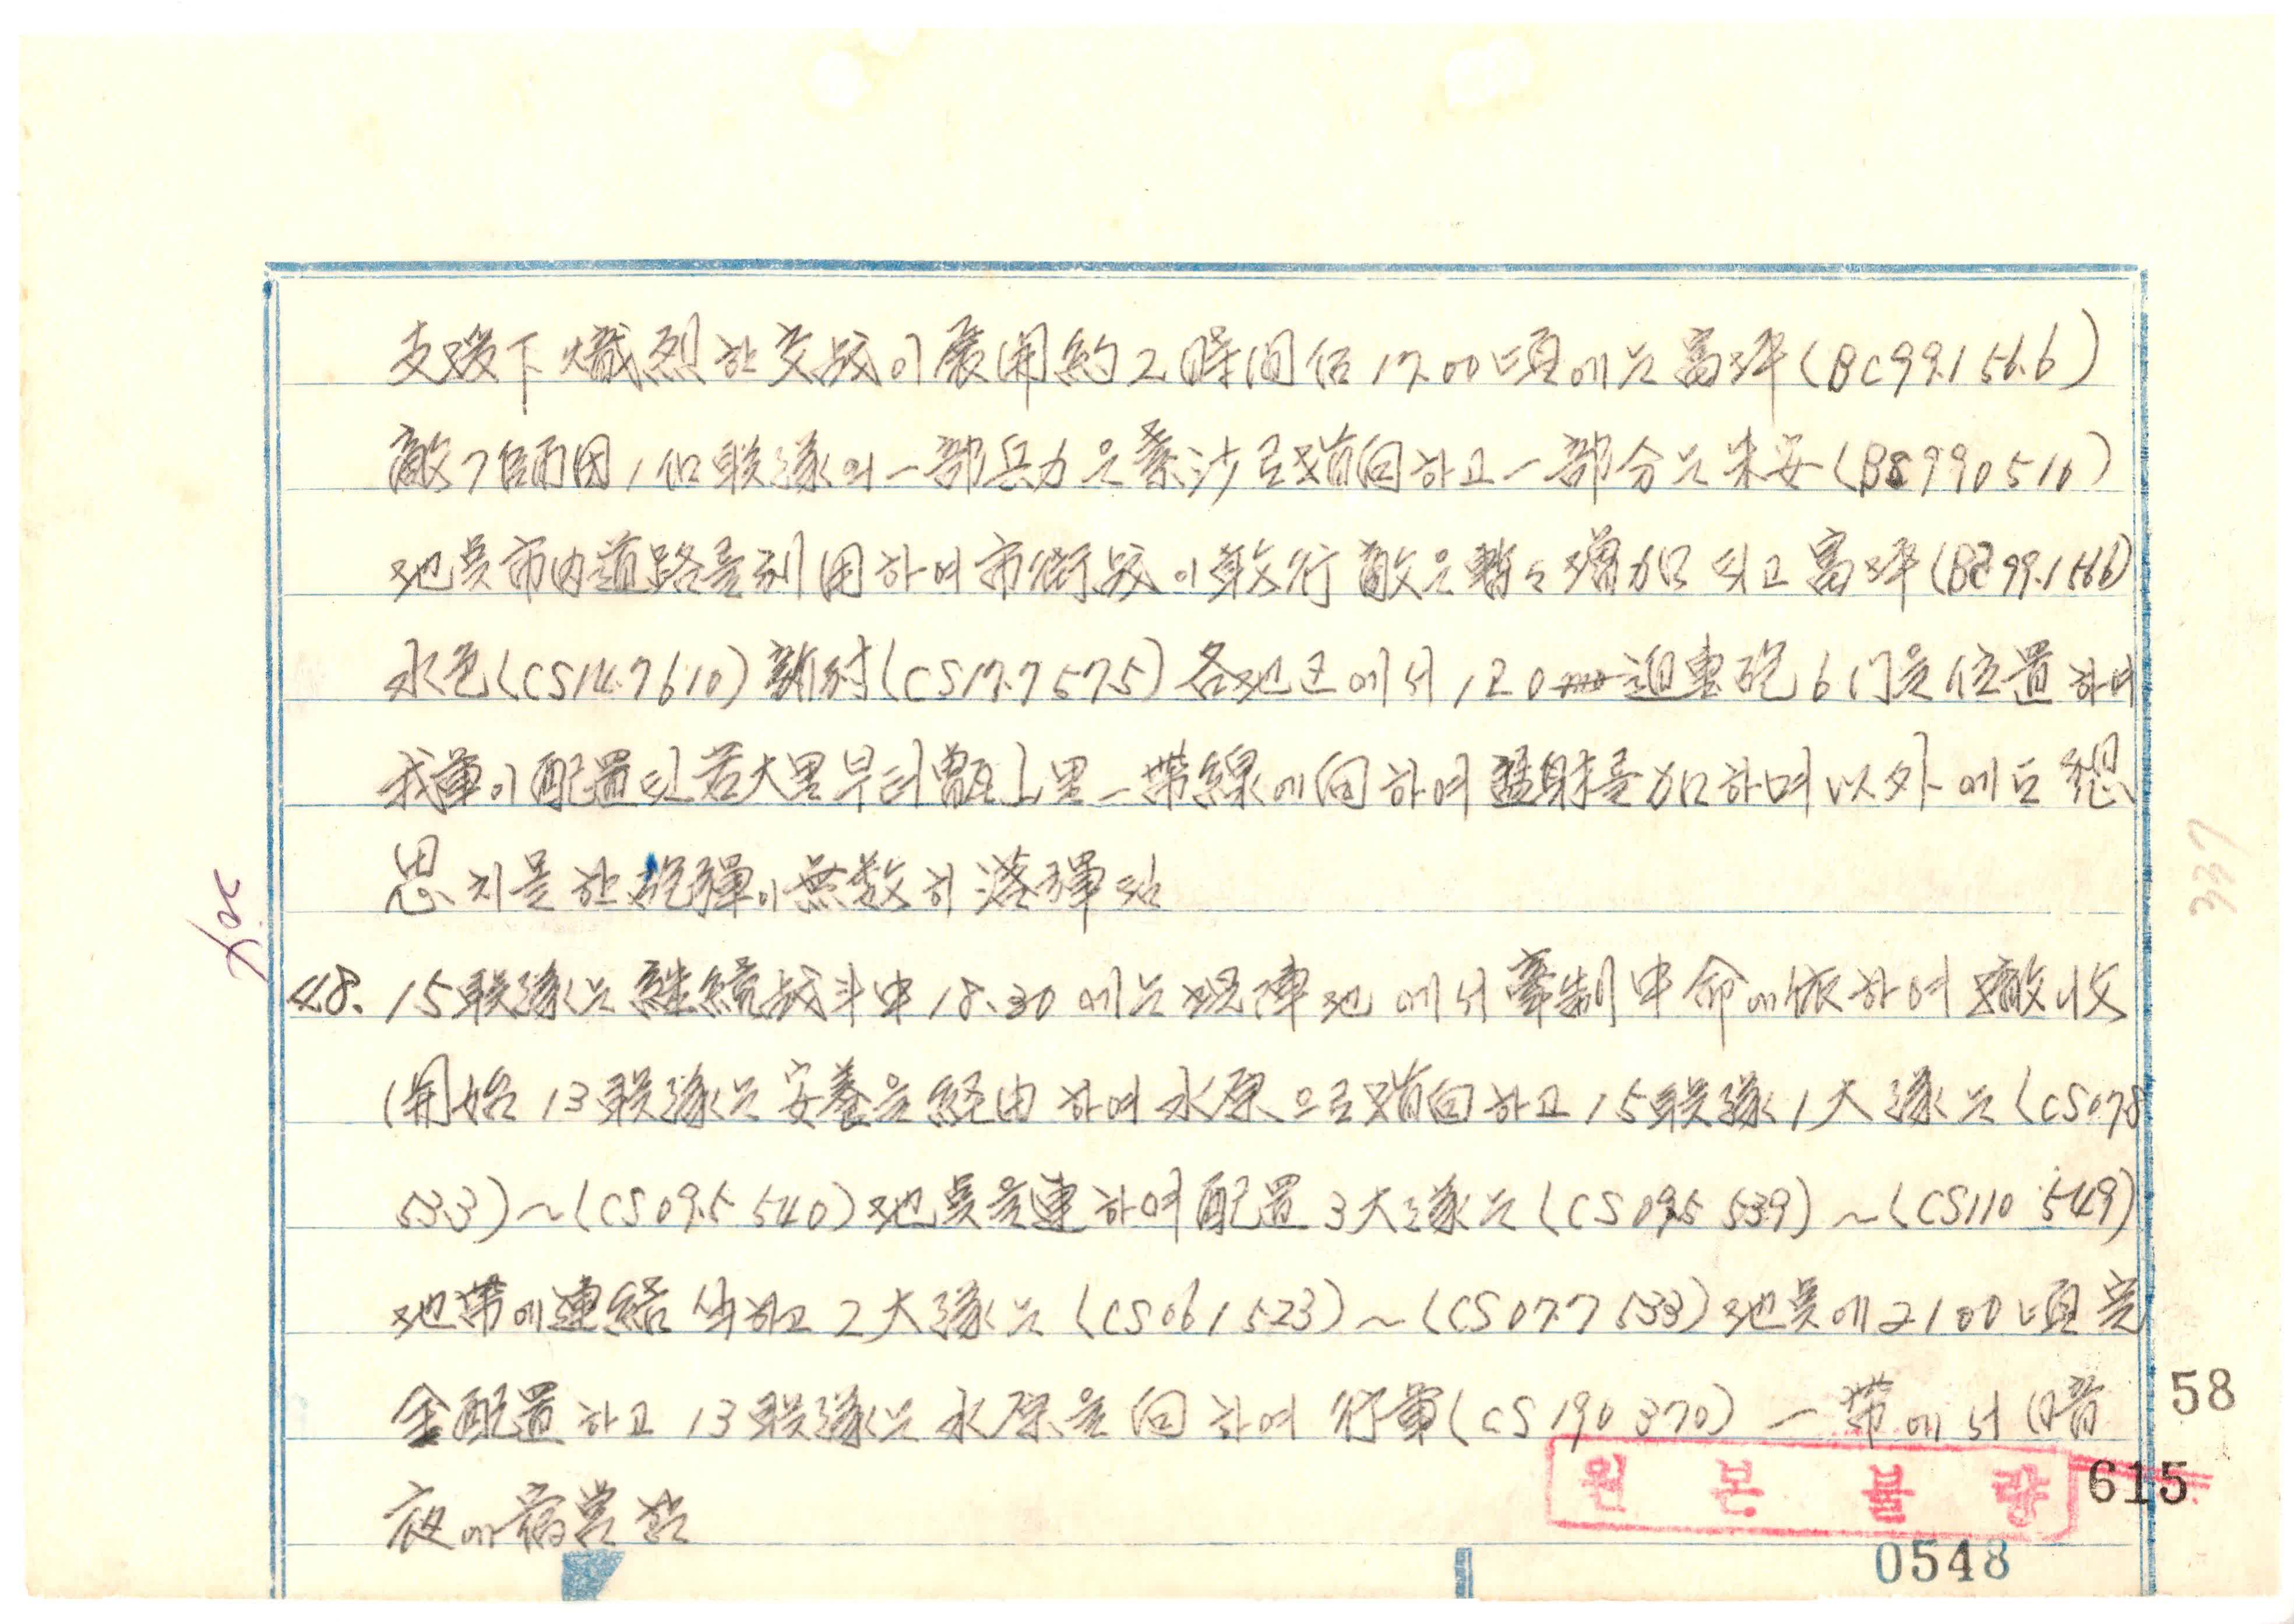 支援下 熾烈한 交战이 展開 約2時間 后 17.00頃에는 富坪(BC99.1 56.6)
敵7師团 1個 联隊의 一部兵力은 素沙로 指向하고 一部分는 朱安(BS990510)
地点 市内道路를 利用하여 市街战이 敢行 敵은 暫〻 增加되고 富坪(BC99.1566)
水色(CS14.7610) 新村(CS17.7575) 各地区에서 120mm 迫車砲 6门을 位置하여
我軍이 配置된 若大里부터 甑上里 一帯線에 向하여 猛射를 加하며 以外에도
思치 못한 砲彈이 無数히 落彈됨
48. 15联隊는 継続战斗中 18.30에는 现陣地에서 牽制中 命에 依하여 撤收
開始 13联隊는 安養을 経由하여 水原으로 指向하고 15联隊 1大隊는 (CS078
533)~(CS09.5 540)地点을 連하여 配置 3大隊는 (CS095 539)~(CS110 549)
地帯에 連結 시키고 2大隊는 (CS061523)~(CS07.7 533)地点에 2100頃 完
全配置하고 13联隊는 水原을 向하여 行軍(CS190370) 一帯에서 暗
夜에 宿营함
337
58
원본불량
615
0548